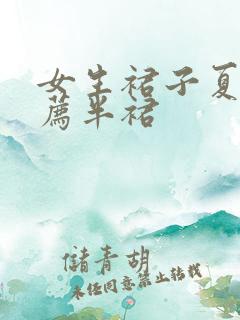 女生裙子夏
薦半裙
儲青胡
未经同意禁止转载